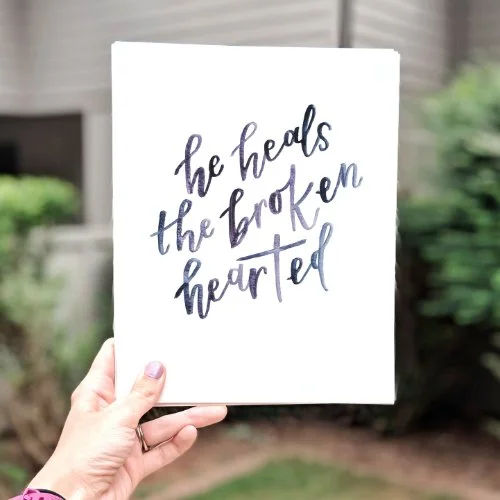 he heals
the broken
hearted